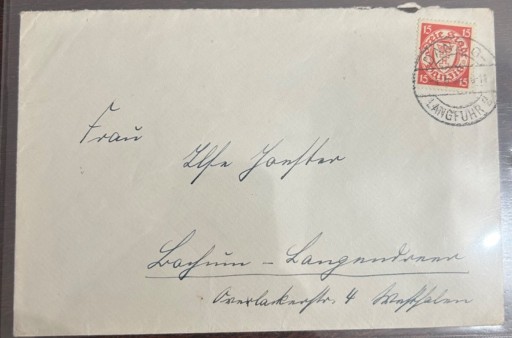 15 15
15 15
LANGFUHR
Frau
Ilse Hoester
Bochum – Langendreer
Overlackerstr. 4 Westfalen